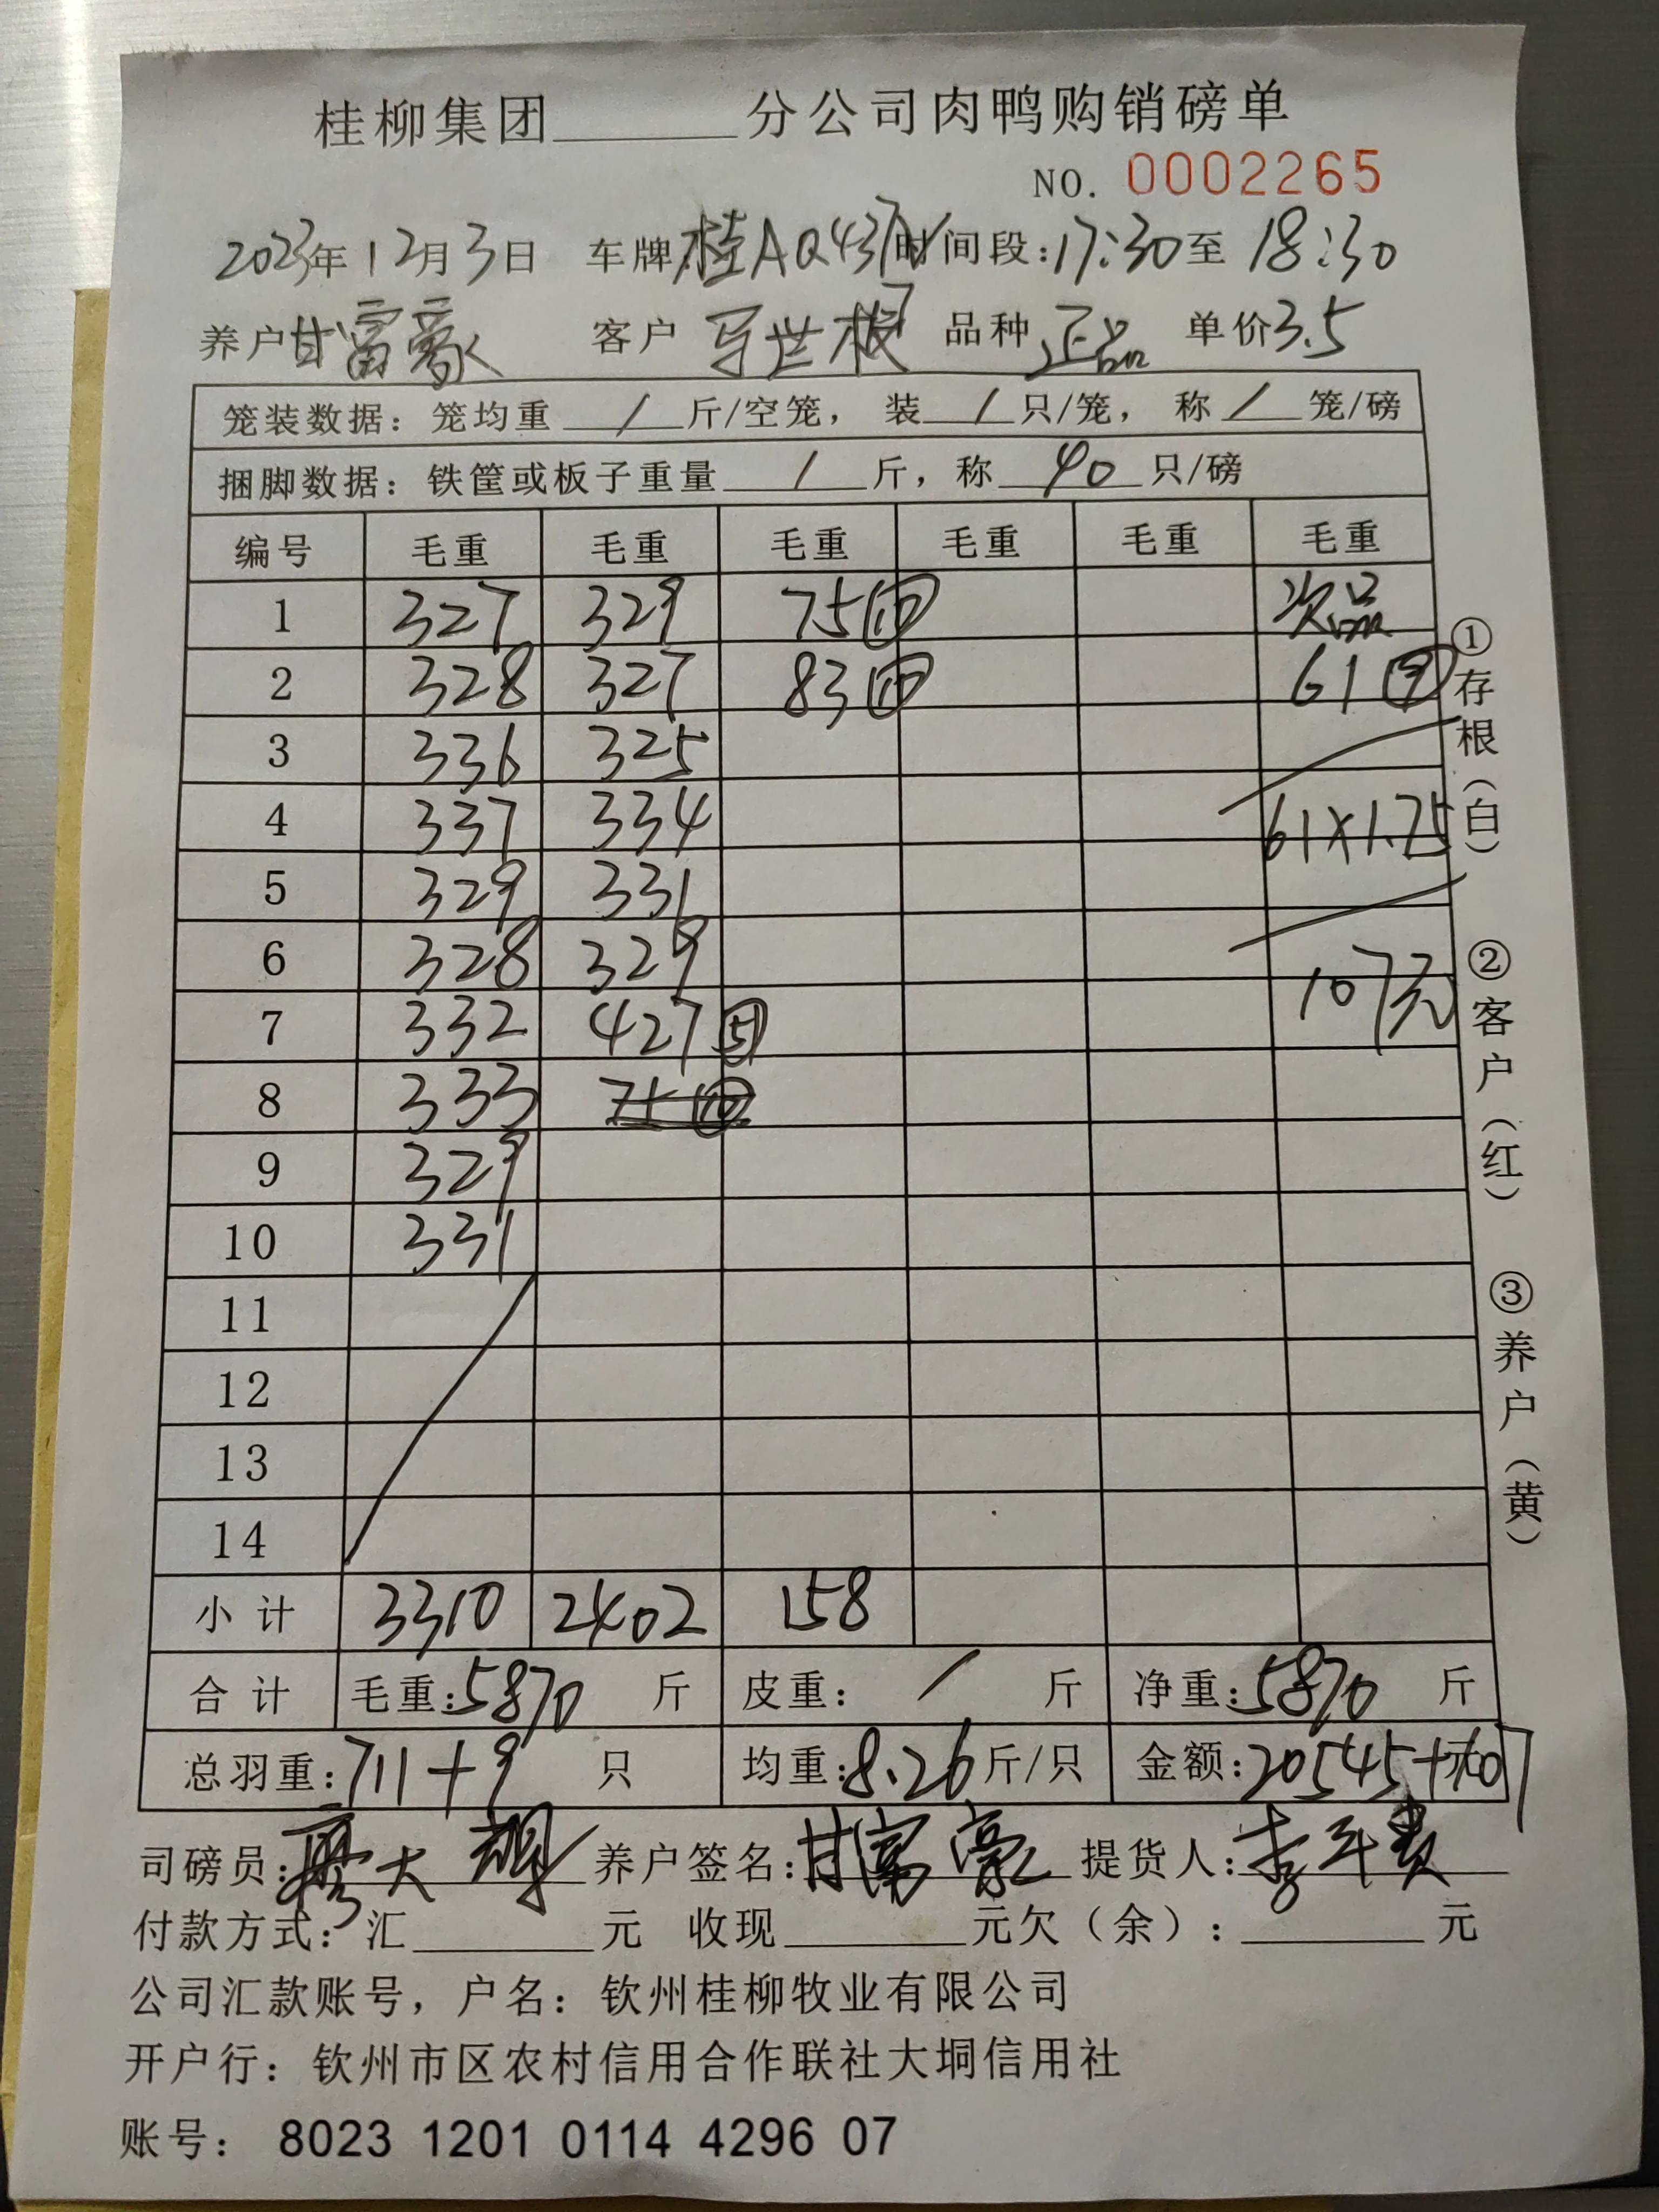 桂柳集团______分公司肉鸭购销磅单
NO. 0002265
2023年12月3日 车牌桂AQ437 时间段:17:30至18:30
养户甘富豪 客户 写世根 品种 正品 单价3.5
笼装数据: 笼均重 / 斤/空笼, 装 / 只/笼, 称 / 笼/磅
捆脚数据: 铁筐或板子重量 / 斤, 称 40 只/磅
编号 毛重 毛重 毛重 毛重 毛重 毛重
1 327 329 75⑩ 次品
2 328 327 83⑩ 61⑨
3 336 325
4 337 334 61×1.75
5 329 331
6 328 329 107元
7 332 427
8 333 75⑩
9 329
10 331
11
12
13
14
小计 3310 2402 158
合计 毛重:5870 斤 皮重: / 斤 净重:5870 斤
总羽重:711+9 只 均重:8.26斤/只 金额:20545+107元
司磅员: 大 养户签名:甘富豪 提货人:李
付款方式: 汇______元 收现______元欠(余):______元
公司汇款账号, 户名: 钦州桂柳牧业有限公司
开户行: 钦州市区农村信用合作联社大垌信用社
账号: 8023 1201 0114 4296 07
①存根(白) ②客户(红) ③养户(黄)